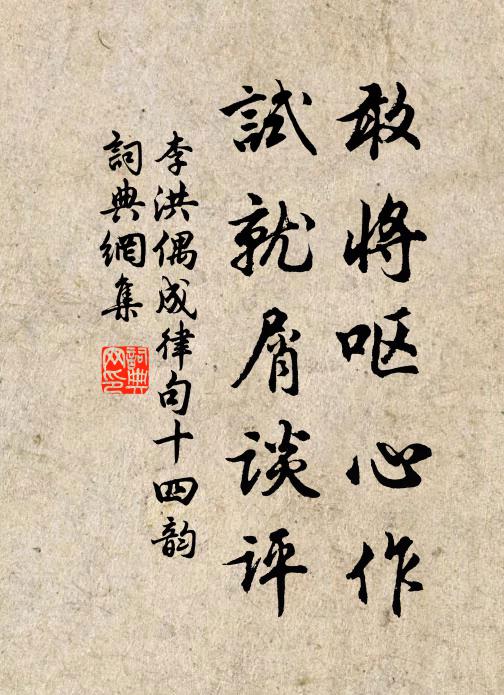 敢将呕心作
試就屑談評
李洪偶成律句十四韵
詞典網集
詞典网印